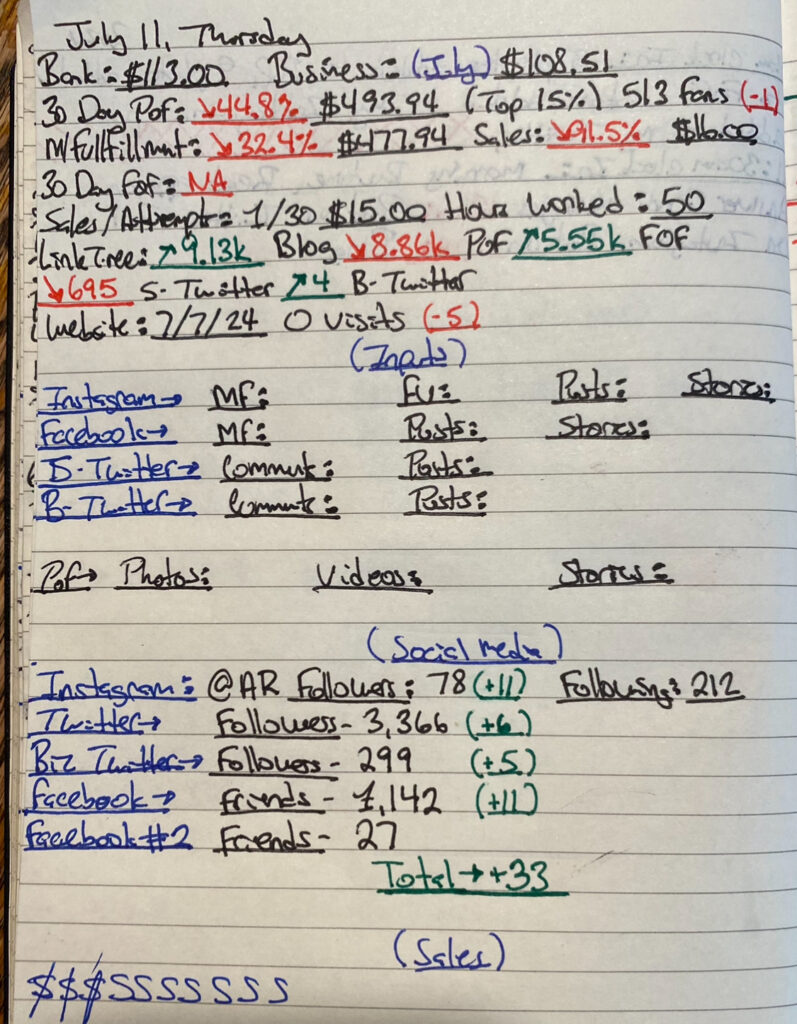 July 11, Thursday
Bank: $113.00 Business: (July) $108.51
30 Day PoF: ↘44.8% $493.94 (Top 15%) 513 fans (-1)
M/fullfillment: ↘32.4% $477.94 Sales: ↘91.5% $16.00
30 Day FoF: NA
Sales/Attempt: 1/30 $15.00 Hour worked: 50
LinkTree: ↗9.13k Blog ↘8.86k PoF ↗5.55k FOF
↘695 S-Twitter ↗4 B-Twitter
Website: 7/7/24 0 visits (-5)
(Inputs)
Instagram→ MF: FU: Posts: Stories:
Facebook→ MF: Posts: Stories:
S-Twitter→ Comments: Posts:
B-Twitter→ Comments: Posts:
PoF→ Photos: Videos: Stories:
(Social media)
Instagram: @AR Followers: 78 (+11) Following: 212
Twitter→ Followers- 3,366 (+6)
Biz Twitter→ Followers- 299 (+5)
Facebook→ Friends- 1,142 (+11)
Facebook#2 Friends- 27
Total→+33
(Sales)
$$$SSSSSSS